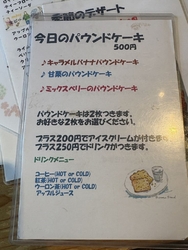 季節のデザート
今日のパウンドケーキ
500円
♪キャラメルバナナパウンドケーキ
♪甘栗のパウンドケーキ
♪ミックスベリーのパウンドケーキ
パウンドケーキは2枚つきます。
お好きな2枚をお選びください。
プラス200円でアイスクリームが付きます
プラス250円でドリンクがつきます
ドリンクメニュー
コーヒー(HOT or COLD)
紅茶(HOT or COLD)
ウーロン茶(HOT or COLD)
アップルジュース